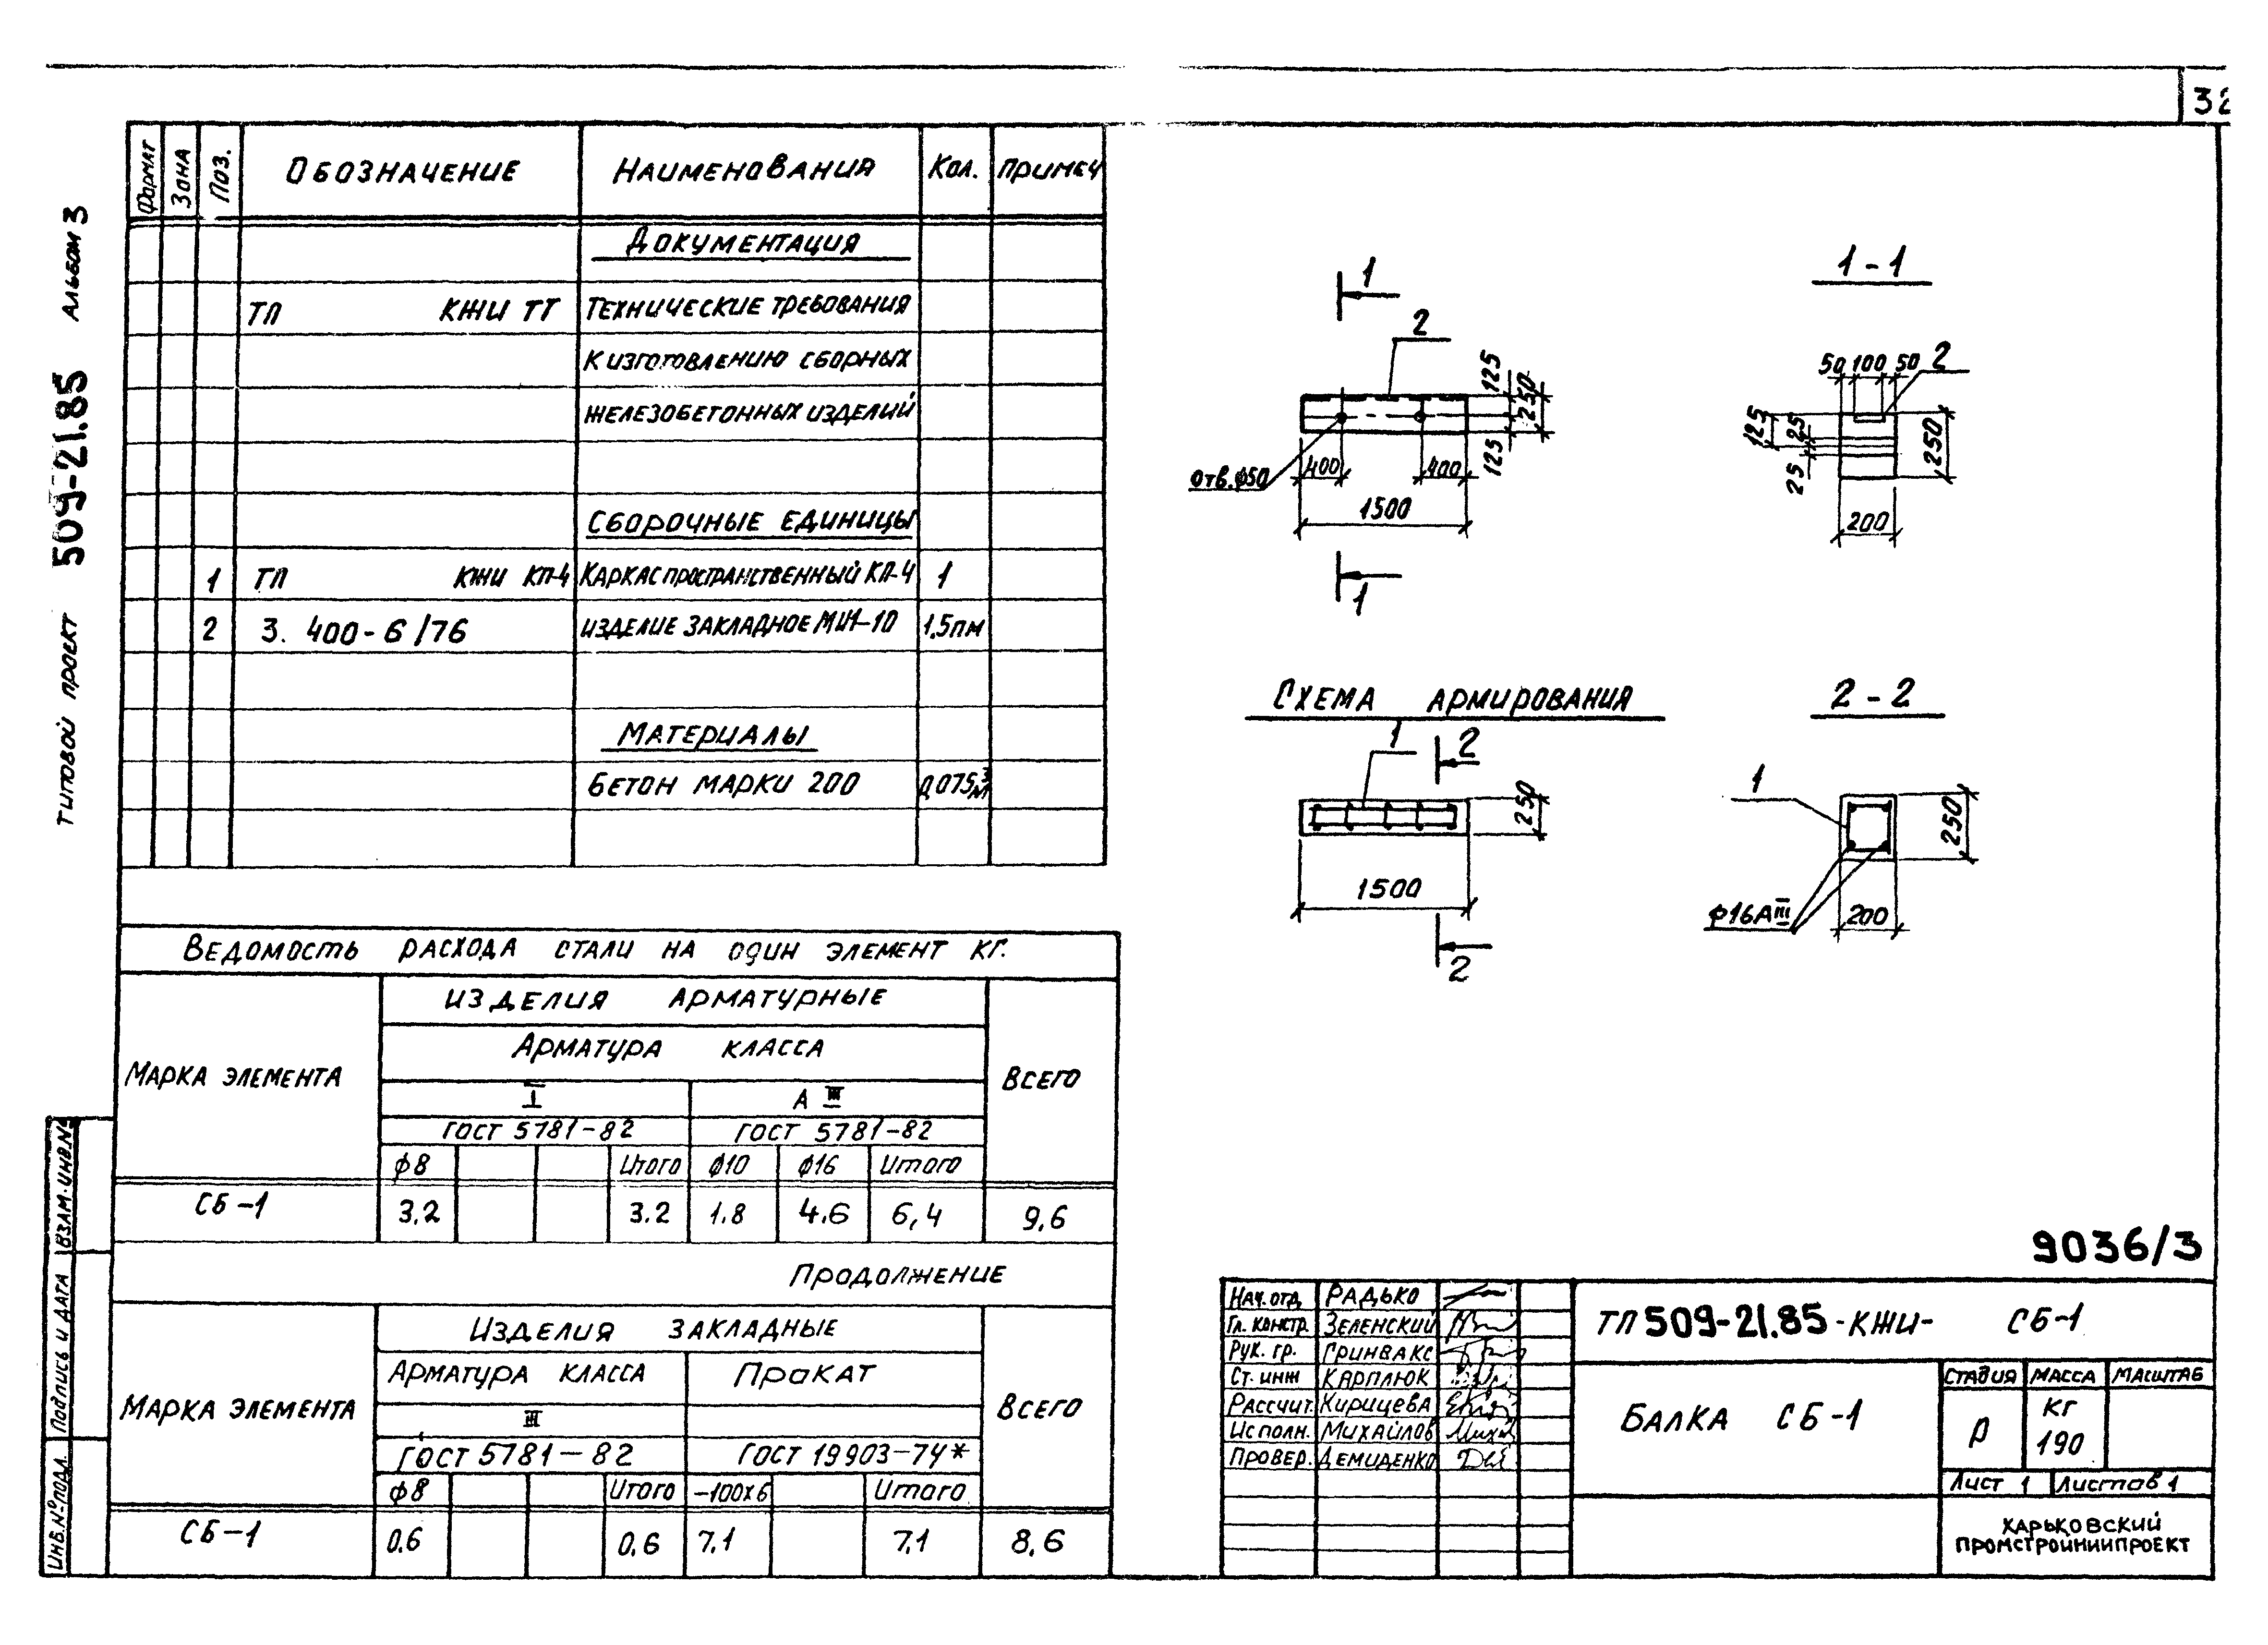 32
Типовой проект 509-21.85 Альбом 3
Формат Зона Поз. Обозначение Наименования Кол. Примеч
Документация
ТП КЖИ ТТ Технические требования
к изготовлению сборных
железобетонных изделий
Сборочные единицы
1 ТП КЖИ КП-4 Каркас пространственный КП-4 1
2 3.400-6/76 Изделие закладное МИ1-10 1,5пм
Материалы
Бетон марки 200 0,075м³
Ведомость расхода стали на один элемент кг.
Марка элемента
Изделия арматурные
Всего
Арматура класса
I А III
ГОСТ 5781-82 ГОСТ 5781-82
ф8 Итого ф10 ф16 Итого
СБ-1 3.2 3.2 1.8 4.6 6,4 9,6
Продолжение
Марка элемента
Изделия закладные
Всего
Арматура класса Прокат
III
ГОСТ 5781-82 ГОСТ 19903-74*
ф8 Итого -100х6 Итого
СБ-1 0.6 0,6 7.1 7.1 8,6
Взам. инв.№
Подпись и дата
Инв.№ подл.
1
2
125
250
125
отв.ф50
400 400
1500
1
1-1
50 100 50 2
125
25
25
250
200
Схема армирования
1 2
250
1500
2
2-2
1
250
ф16АIII
200
9036/3
Нач. отд. Радько
Гл. констр. Зеленский
Рук. гр. Гринвакс
Ст. инж Карплюк
Рассчит. Кирицева
Исполн. Михайлов
Провер. Демиденко
ТП 509-21.85-КЖИ- СБ-1
Балка СБ-1
Стадия Масса Масштаб
Р кг
190
Лист 1 Листов 1
Харьковский
Промстройниипроект